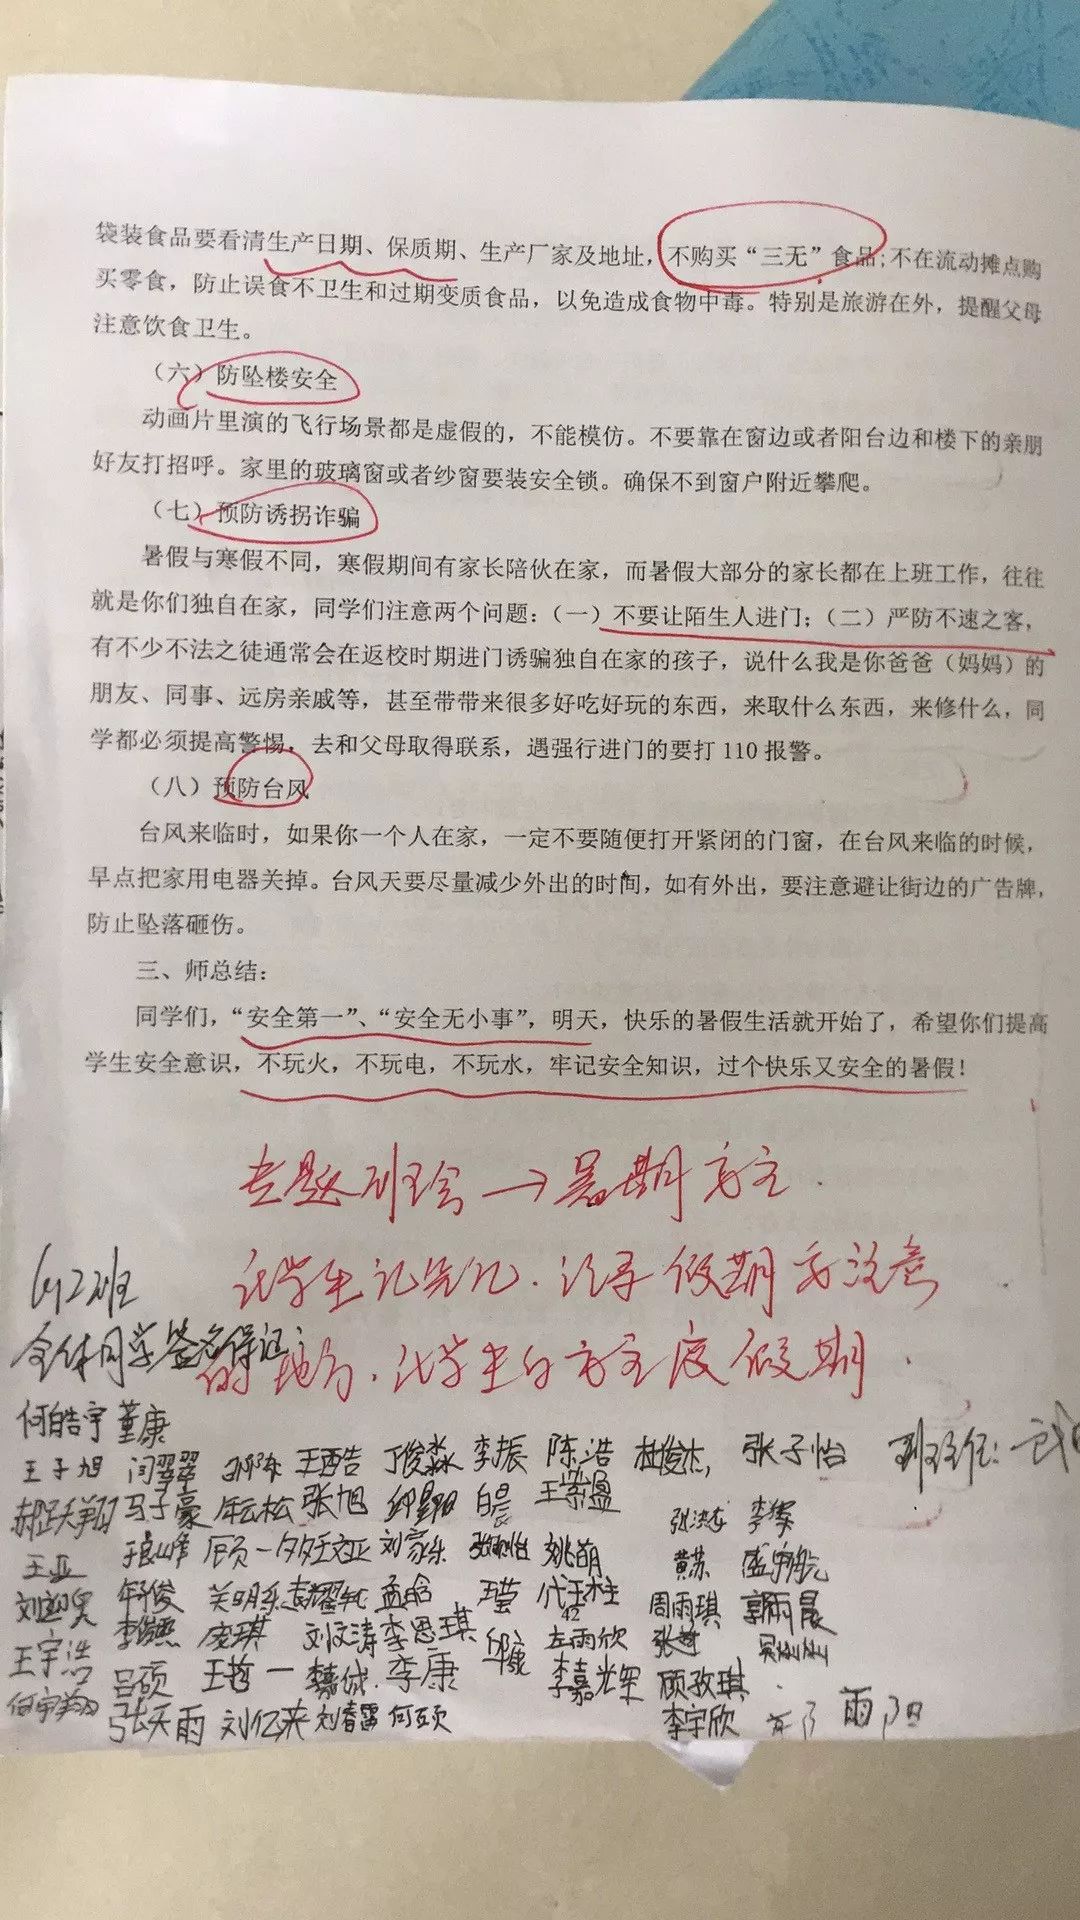 袋装食品要看清生产日期、保质期、生产厂家及地址，不购买“三无”食品；不在流动摊点购
买零食，防止误食不卫生和过期变质食品，以免造成食物中毒。特别是旅游在外，提醒父母
注意饮食卫生。
（六）防坠楼安全
动画片里演的飞行场景都是虚假的，不能模仿。不要靠在窗边或者阳台边和楼下的亲朋
好友打招呼。家里的玻璃窗或者纱窗要装安全锁。确保不到窗户附近攀爬。
（七）预防诱拐诈骗
暑假与寒假不同，寒假期间有家长陪伙在家，而暑假大部分的家长都在上班工作，往往
就是你们独自在家，同学们注意两个问题：（一）不要让陌生人进门；（二）严防不速之客，
有不少不法之徒通常会在返校时期进门诱骗独自在家的孩子，说什么我是你爸爸（妈妈）的
朋友、同事、远房亲戚等，甚至带带来很多好吃好玩的东西，来取什么东西，来修什么，同
学都必须提高警惕，去和父母取得联系，遇强行进门的要打 110 报警。
（八）预防台风
台风来临时，如果你一个人在家，一定不要随便打开紧闭的门窗，在台风来临的时候，
早点把家用电器关掉。台风天要尽量减少外出的时间，如有外出，要注意避让街边的广告牌，
防止坠落砸伤。
三、师总结：
同学们，“安全第一”、“安全无小事”，明天，快乐的暑假生活就开始了，希望你们提高
学生安全意识，不玩火，不玩电，不玩水，牢记安全知识，过个快乐又安全的暑假！
专题班会→暑期安全.
让学生 假期安全注意
的地方.让学生的安全度假期.
全体同学签名保证：
何皓宇 董康
王子旭 闫翠翠 王酉告 丁俊淼 李振 陈浩 杜俊杰 张子怡 班主任：
郝跃翔 马子豪 张旭 白晨 王崇盈 李军
王亚 刘家乐 姚萌 黄苏 盛宇航
孟晗 王莹 周雨琪 郭雨晨
王宇浩 庞琪 刘文涛 李思琪 邱康 左雨欣
何宇翔 吕硕 王哲一 李康 李嘉光军 顾孜琪
张天雨 刘亿来 刘春雷 何硕 李宇欣 雨阳